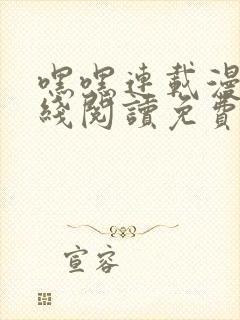 嘿嘿連載漫
綫閱讀免費
宣容